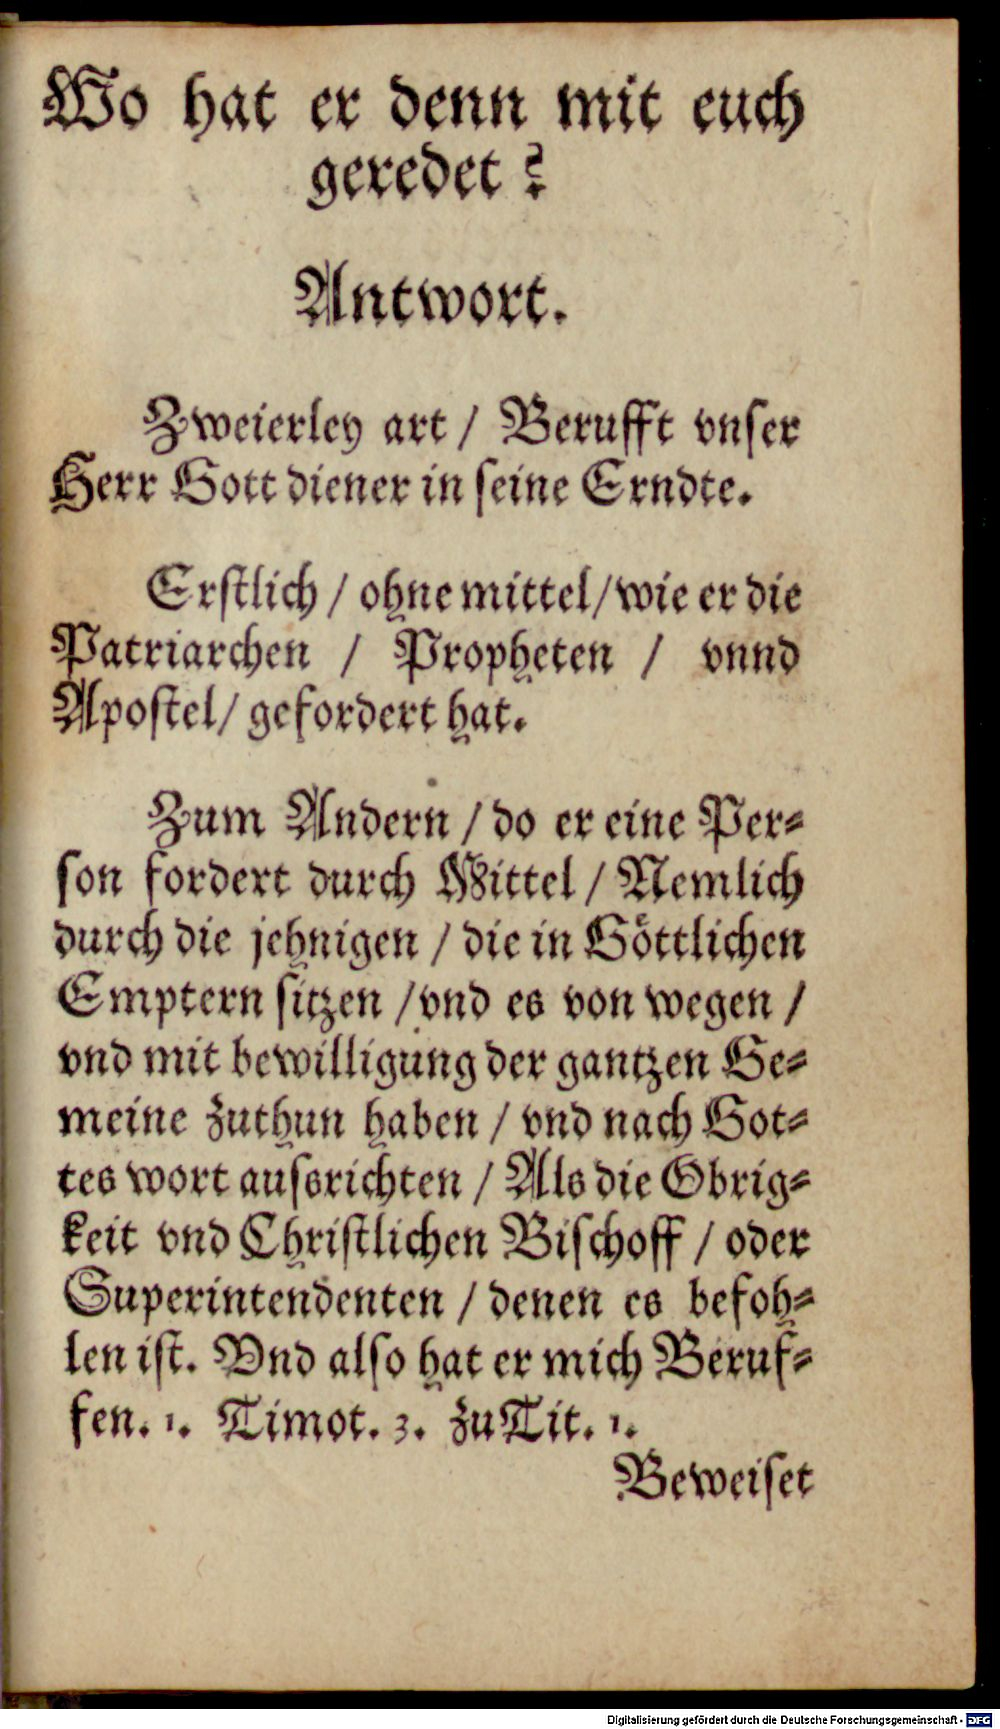 Wo hat er denn mit euch
geredet?
Antwort.
Zweierley art / Berufft vnser
Herr Gott diener in seine Erndte.
Erstlich / ohne mittel / wie er die
Patriarchen / Propheten / vnnd
Apostel / gefordert hat.
Zum Andern / do er eine Per-
son fordert durch Mittel / Nemlich
durch die jehnigen / die in Göttlichen
Emptern sitzen / vnd es von wegen /
vnd mit bewilligung der gantzen Ge-
meine zuthun haben / vnd nach Got-
tes wort aussrichten / Als die Obrig-
keit vnd Christlichen Bischoff / oder
Superintendenten / denen es befoh-
len ist. Vnd also hat er mich Beruf-
fen. 1. Timot. 3. zu Tit. 1.
Beweiset
Digitalisierung gefördert durch die Deutsche Forschungsgemeinschaft - DFG